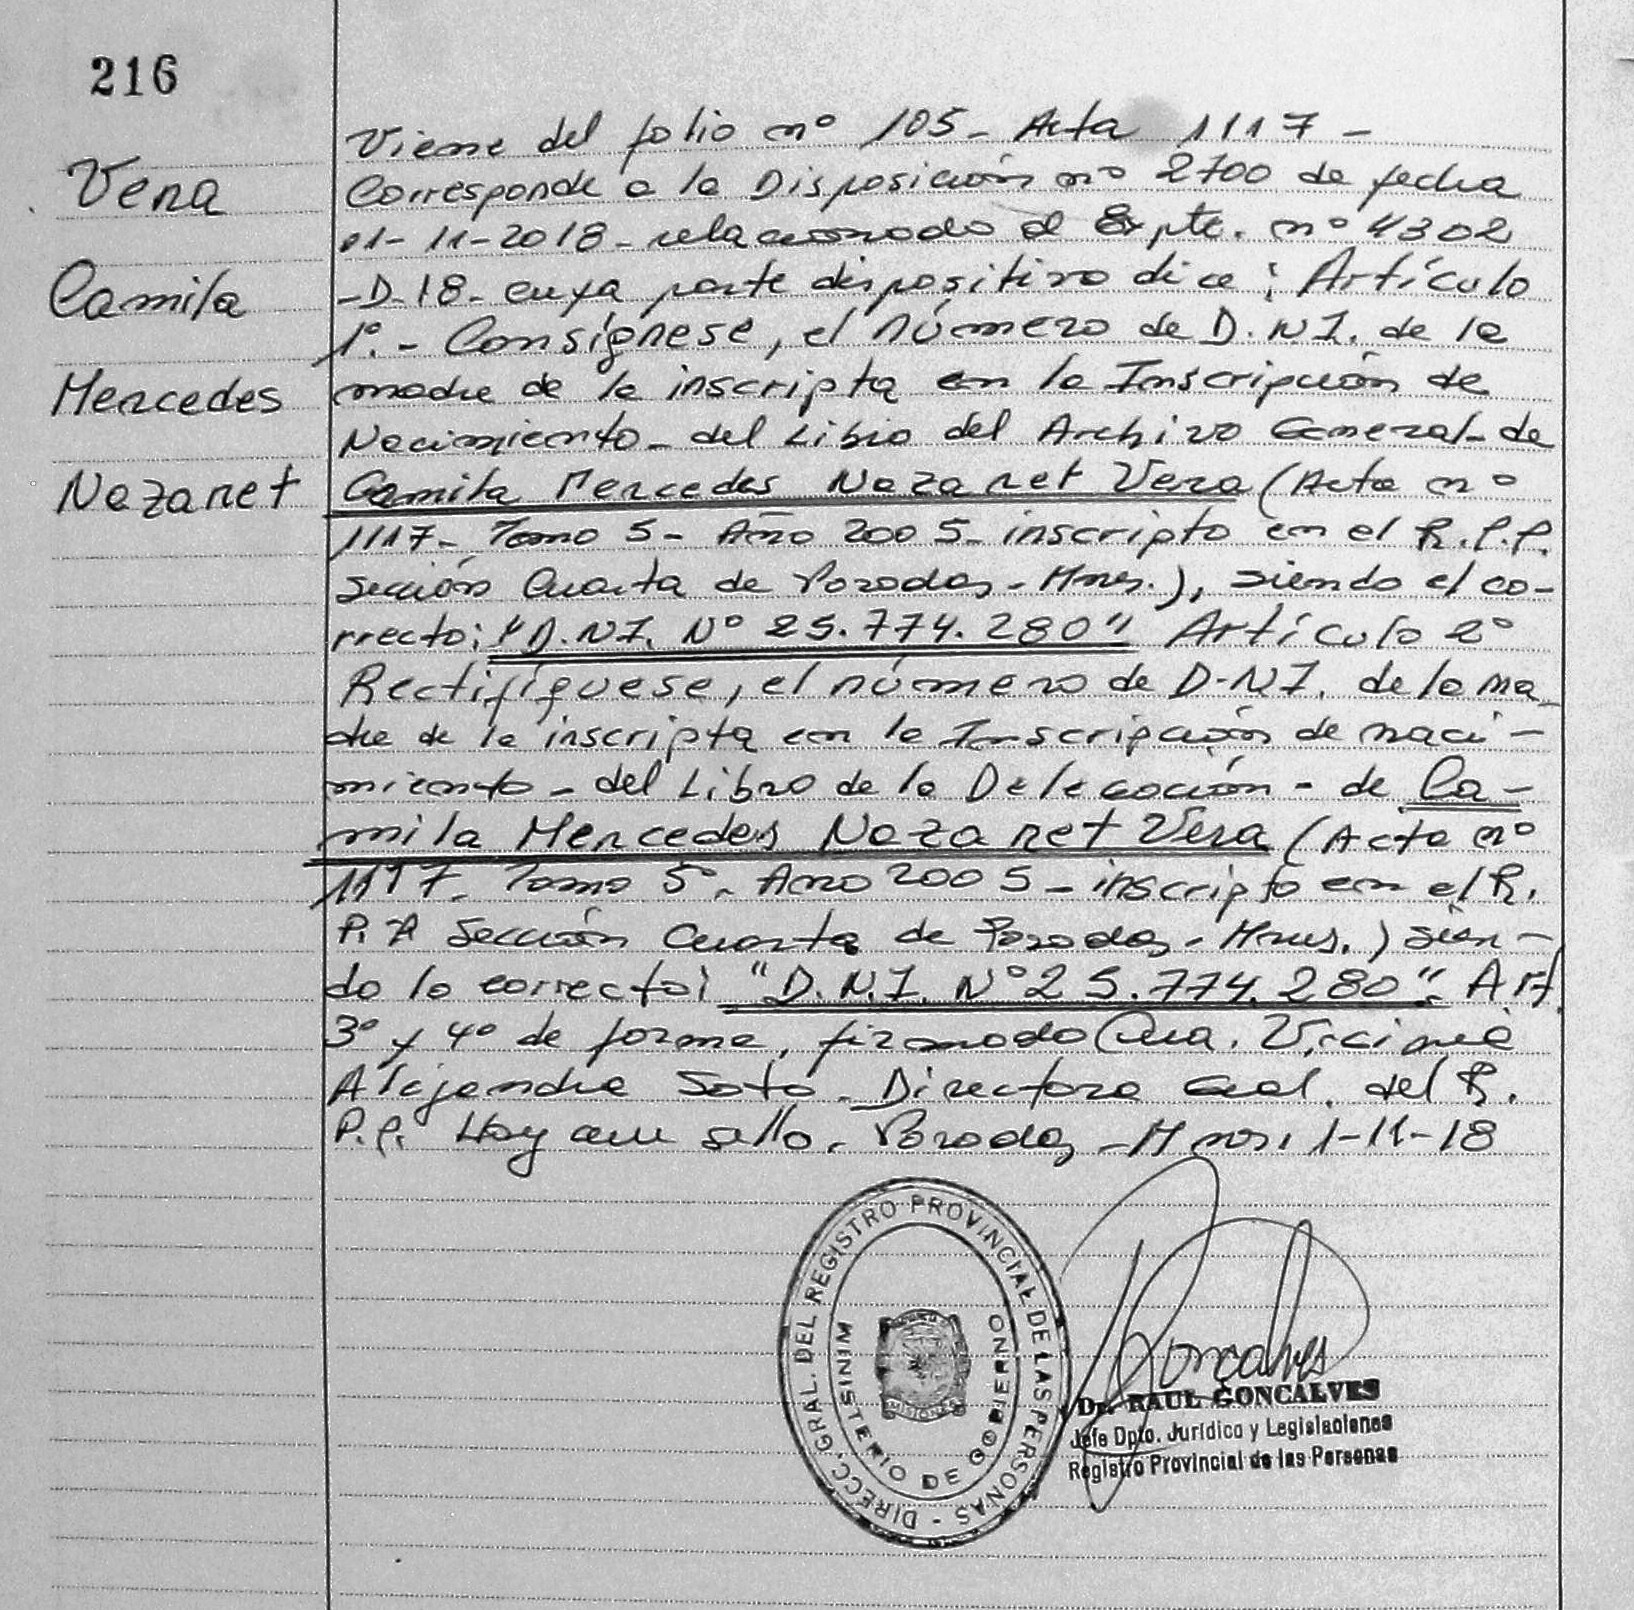 216
Vera
Camila
Mercedes
Nazaret
Viene del folio nº 105- Acta 1117-
Corresponde a la Disposición nº 2700 de fecha
01-11-2018- relacionado al Expte. nº 4302
-D-18- cuya parte dispositiva dice: Artículo
1º.- Consígnese, el número de D.N.I. de la
madre de la inscripta en la Inscripción de
Nacimiento- del Libro del Archivo General- de
Camila Mercedes Nazaret Vera (Acta nº
1117- Tomo 5- Año 2005- inscripto en el R.P.P.
Sección Cuarta de Posadas- Mnes.), siendo el co-
rrecto: "D.N.I. Nº 25.774.280" Artículo 2º
Rectifíquese, el número de D.N.I. de la ma-
dre de la inscripta en la Inscripción de naci-
miento- del Libro de la Delegación- de Ca-
mila Mercedes Nazaret Vera (Acta nº
1117- Tomo 5º- Año 2005- inscripto en el R.
P.P. Sección Cuarta de Posadas- Mnes.) sien-
do lo correcto: "D.N.I. Nº 25.774.280". Art.
3º y 4º de forma, firmado Viviana
Alejandra Soto- Directora Gral. del R.
P.P. Hay un sello. Posadas- Mnes. 1-11-18
DIRECC. GRAL. DEL REGISTRO PROVINCIAL DE LAS PERSONAS -
MINISTERIO DE GOBIERNO
MISIONES
RGoncalves
Dr. RAUL GONCALVES
Jefe Dpto. Jurídico y Legislaciones
Registro Provincial de las Personas